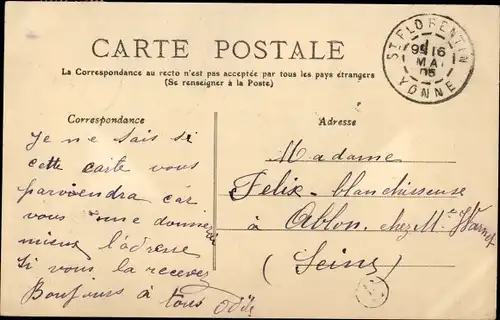 CARTE POSTALE
La Correspondance au recto n'est pas acceptée par tous les pays étrangers
(Se renseigner à la Poste)
ST FLORENTIN
9E 16
MAI
05
YONNE
Correspondance
Je ne sais si
cette carte vous
parviendra car
vous me donner
mieux l'adresse
si vous la recevez
Bonjours à tous
Adresse
Madame
Felix blanchisseuse
à Ablon chez Mr
(Seine)